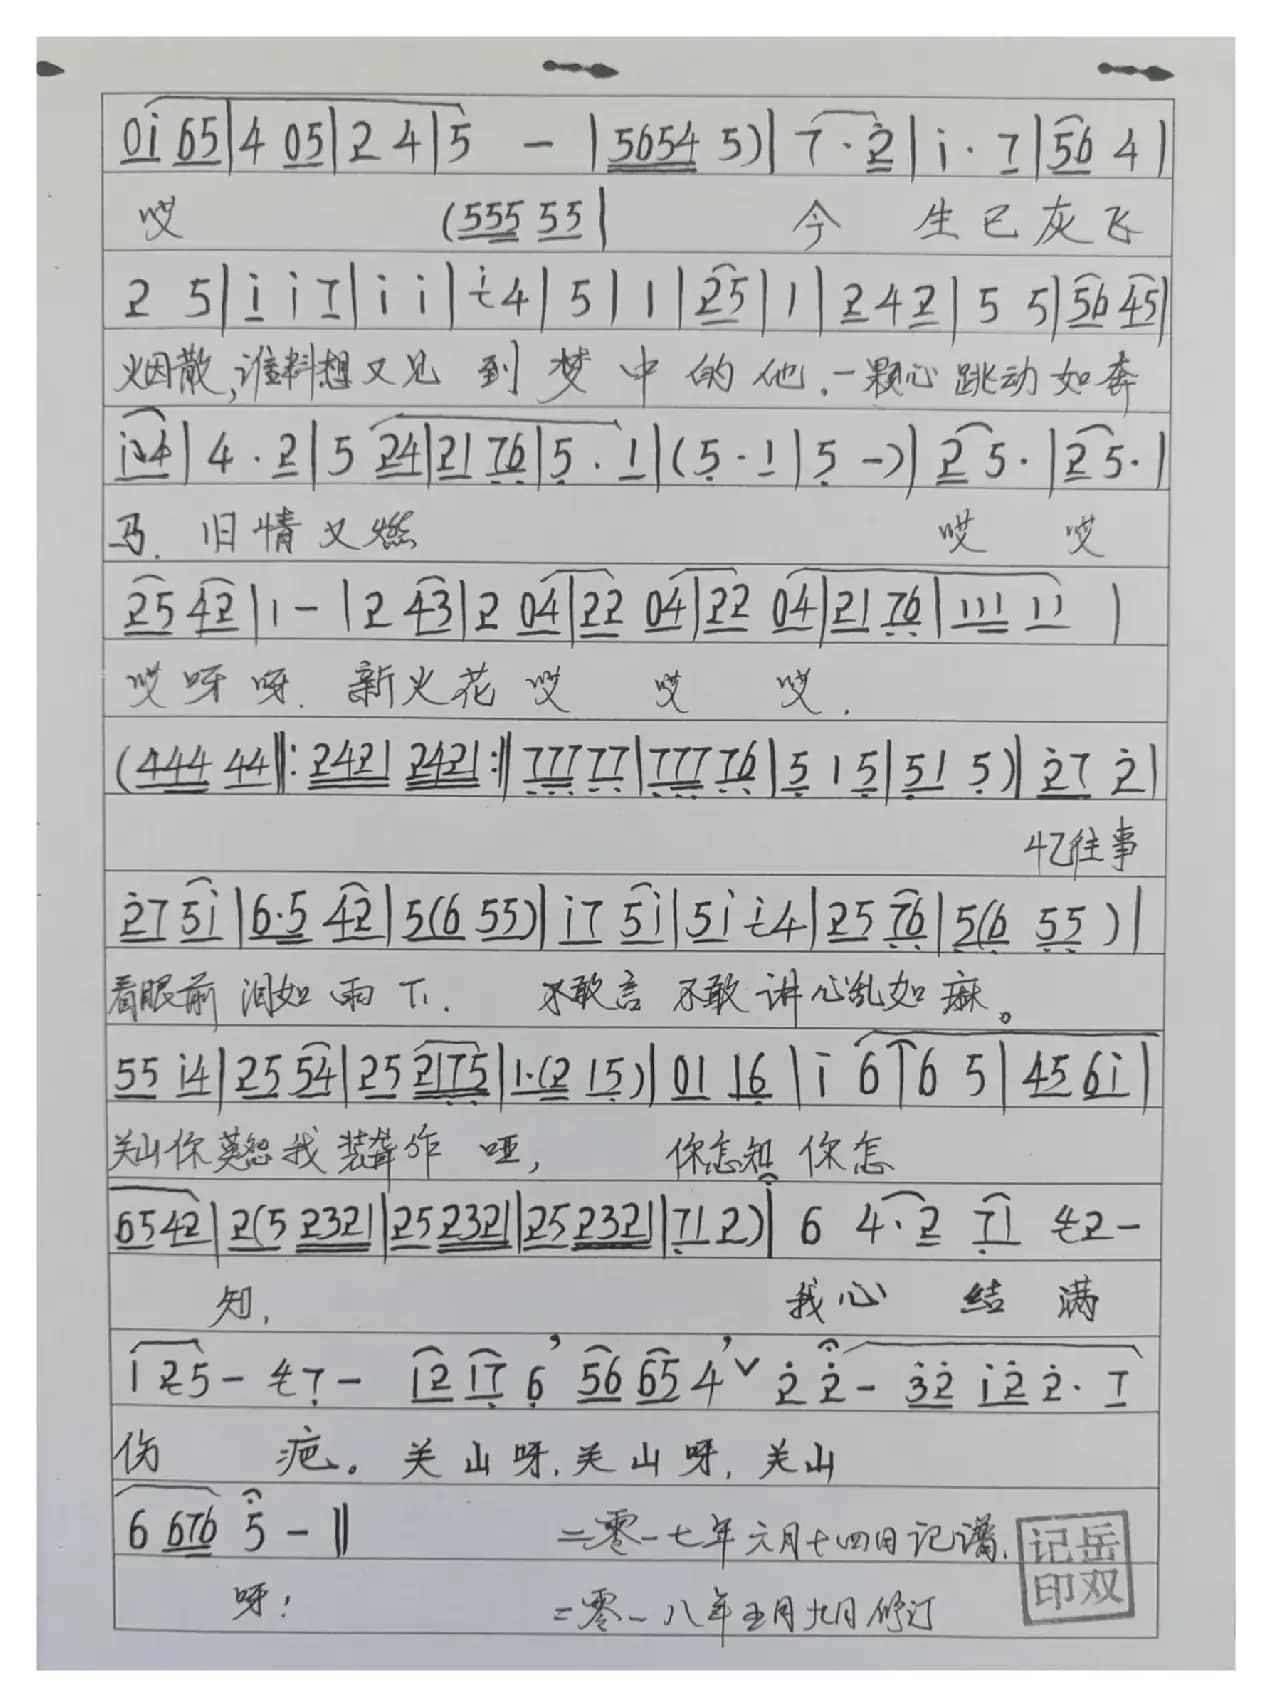 0i 65|4 05|2 4|5 - |5654 5)|7·2|i·7|56 4|
哎 (555 55| 今 生已灰飞
2 5|i i 7|i i|i 4|5|1|25|1|2 4 2|5 5|56 45|
烟散,谁料想又见 到 梦 中 的 他.一颗心跳动如奔
i 4|4·2|5 24|21 76|5·1|(5·1|5 -)|2 5·|2 5·|
马. 旧情又燃 哎 哎
25 42|1 -|2 43|2 04|22 04|22 04|21 76|111 11|
哎呀呀. 新火花 哎 哎 哎.
(444 44‖:2421 2421:‖777 77|777 76|5 1 5|51 5)|27 2|
忆往事
27 5i|6·5 42|5(6 55)|i7 5i|5i i4|25 76|5(6 55)|
看眼前 泪如雨下. 不敢言 不敢讲心乱如麻。
55 i4|25 54|25 2175|1·(2 15)|01 16|i 6|6 5|45 6i|
关山你莫怨我 装聋作 哑, 你怎知 你怎
65 42|2(5 2321|25 2321|25 2321|71 2)| 6 4·2 71 2 -
知, 我心 结 满
1 2 5 - 7 - 12 17 6’ 56 65 4’∨ 2 2 - 32 12 2·7
伤 疤。 关山呀,关山呀,关山
6 676 5 - ‖ 二零一七年六月十四日记谱.
呀! 二零一八年五月九日修订
记岳
印双